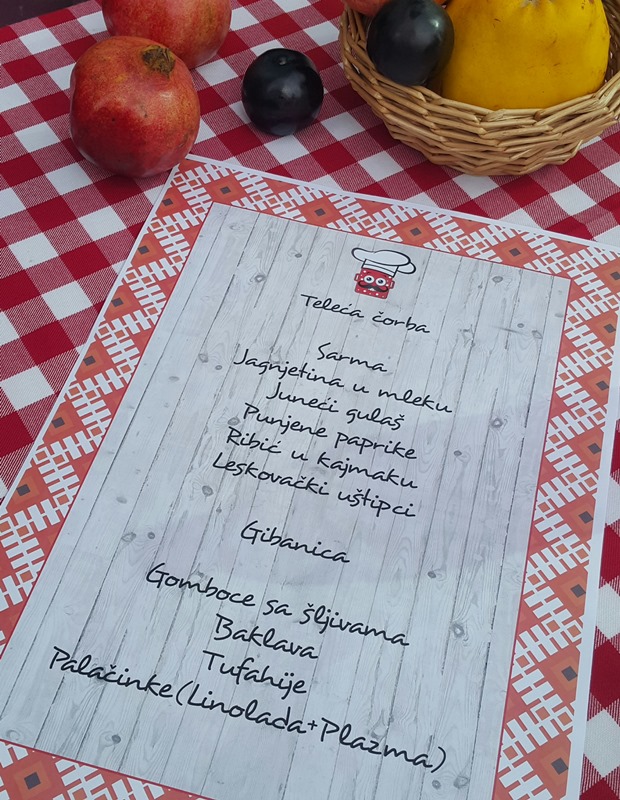 Teleća čorba
Sarma
Jagnjetina u mleku
Juneći gulaš
Punjene paprike
Ribić u kajmaku
Leskovački uštipci
Gibanica
Gomboce sa šljivama
Baklava
Tufahije
Palačinke(Linolada+Plazma)